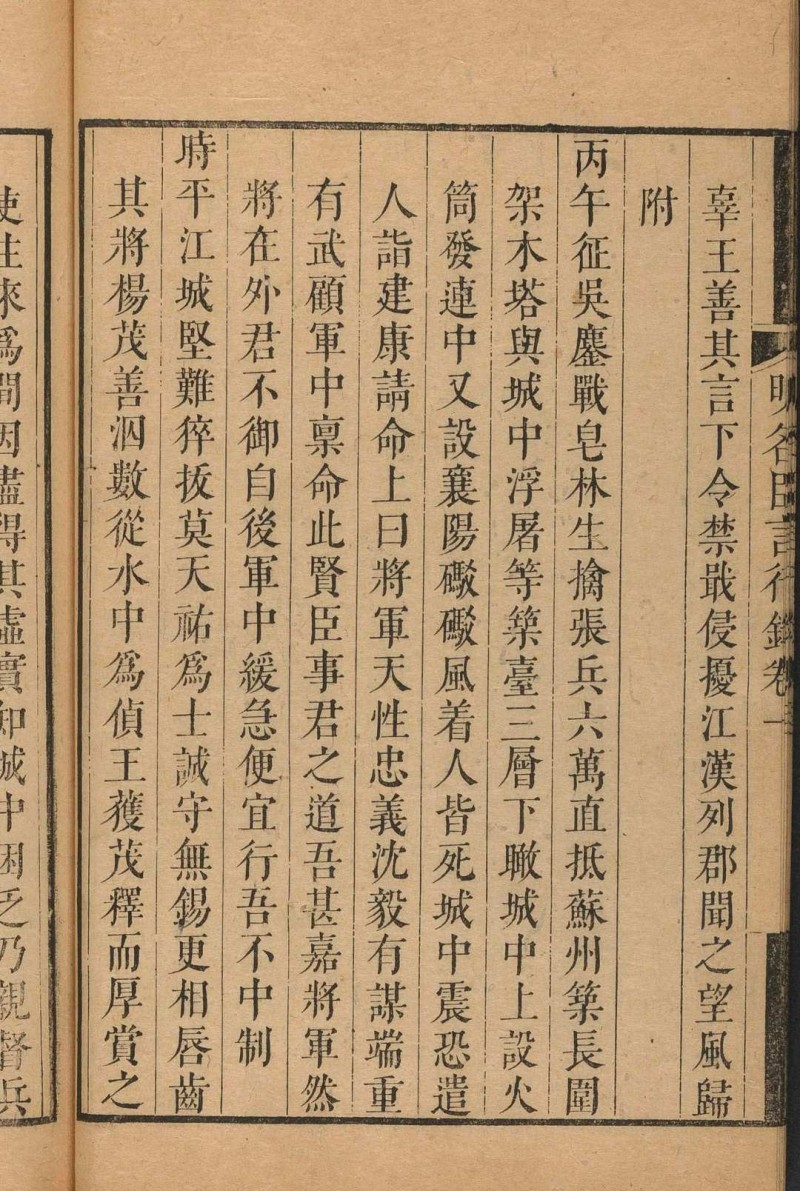 明名臣言行錄卷一
辜王善其言下令禁戢侵擾江漢列郡聞之望風歸
附
丙午征吳鏖戰皂林生擒張兵六萬直抵蘇州築長圍
架木塔與城中浮屠等築臺三層下瞰城中上設火
筒發連中又設襄陽礮礮風着人皆死城中震恐遣
人詣建康請命上曰將軍天性忠義沈毅有謀端重
有武顧軍中稟命此賢臣事君之道吾甚嘉將軍然
將在外君不御自後軍中緩急便宜行吾不中制
時平江城堅難猝拔莫天祐爲士誠守無錫更相唇齒
其將楊茂善泅數從水中爲偵王獲茂釋而厚賞之
使往來爲間因盡得其虛實知城中困乏乃親督兵